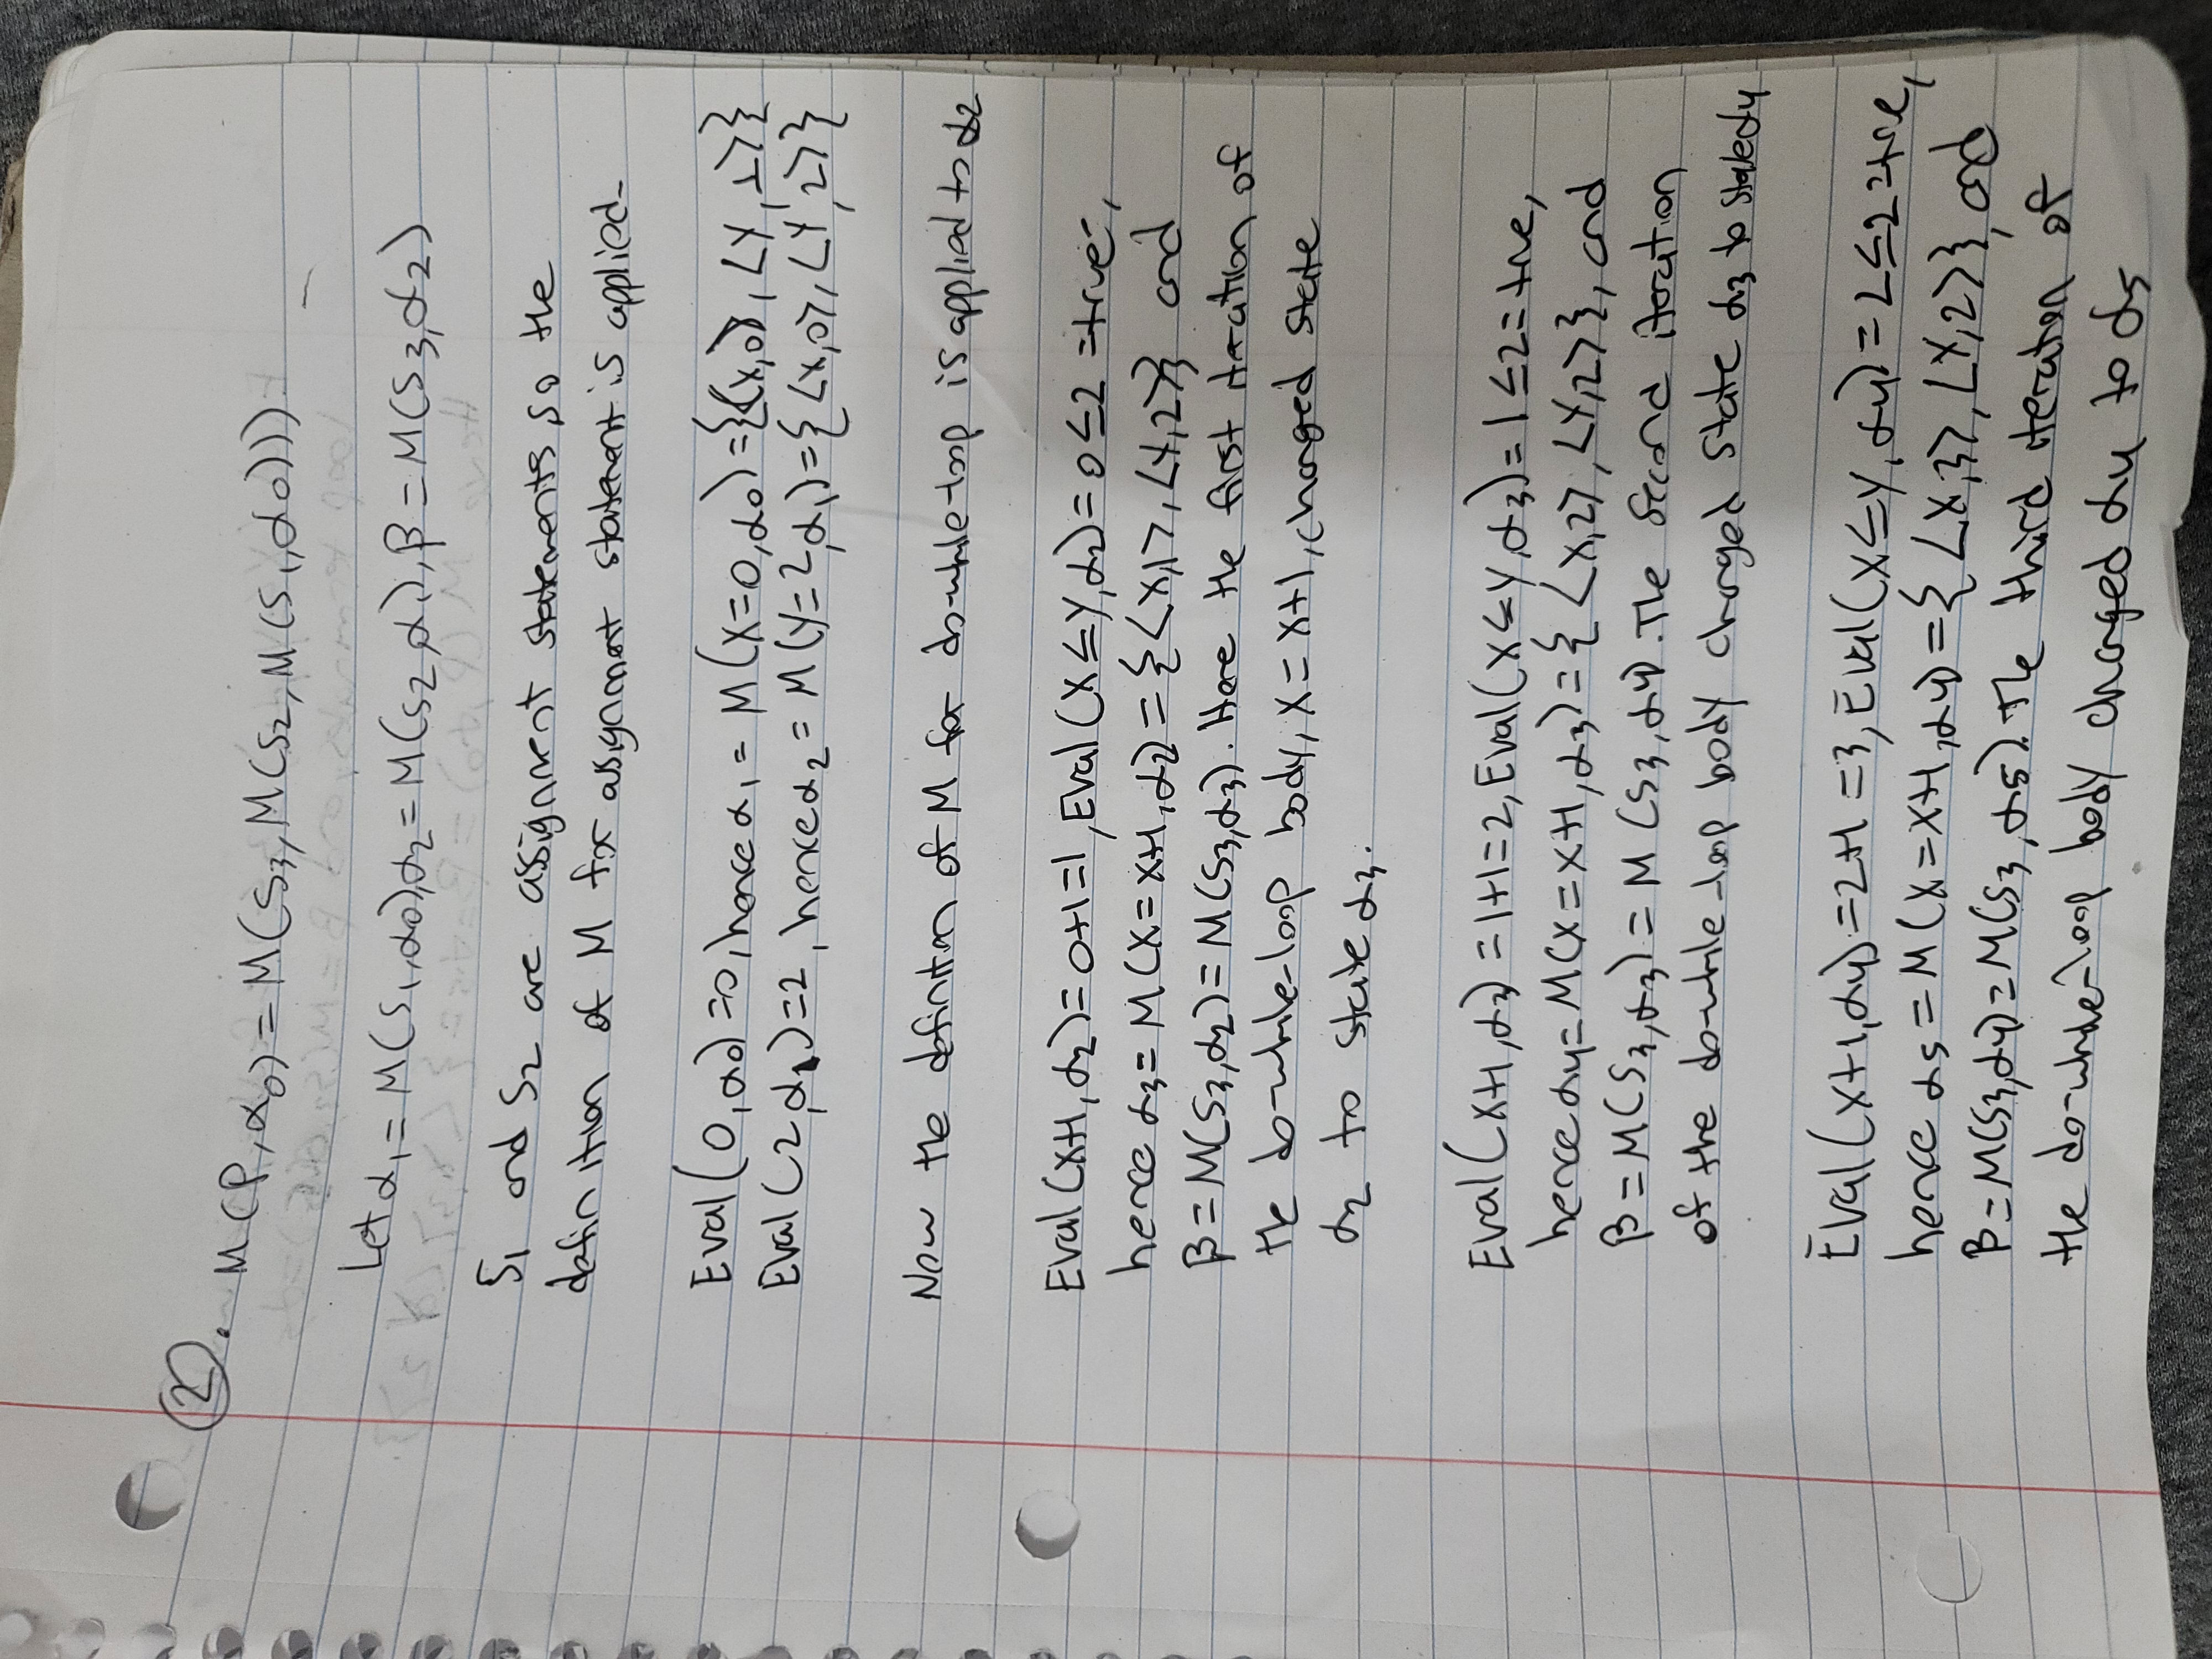 ②. M(P,α₀) = M(S₃, M(S₂, M(S₁,α₀)))
Let α₁ = M(S₁,α₀), α₂ = M(S₂,α₁), β = M(S₃,α₂)
S₁ and S₂ are assignment statements so the
definition of M for assignment statement is applied.
Eval(0,α₀)=0, hence α₁ = M(X=0,α₀)={<X,0>, <Y,⊥>}
Eval(2,α₁)=2, hence α₂ = M(Y=2,α₁)={<X,0>, <Y,2>}
Now the definition of M for do-while-loop is applied to α₂
Eval(X+1,α₂)=0+1=1, Eval(X≤Y,α₂)=0≤2=true,
hence α₃ = M(X=X+1,α₂) = {<X,1>, <Y,2>} and
β = M(S₃,α₂) = M(S₃,α₃). Here the first iteration of
the do-while-loop body, X=X+1, changed state
α₂ to state α₃.
Eval(X+1,α₃)=1+1=2, Eval(X≤Y,α₃)=1≤2=true,
hence α₄=M(X=X+1,α₃)={<X,2>, <Y,2>}, and
β=M(S₃,α₃)=M(S₃,α₄). The second iteration
of the do-while-loop body changed state α₃ to state α₄
Eval(X+1,α₄)=2+1=3, Eval(X≤Y,α₄)=2≤2=true,
hence α₅=M(X=X+1,α₄)={<X,3>, <Y,2>}, and
β=M(S₃,α₄)=M(S₃,α₅). The third iteration of
the do-while-loop body changed α₄ to α₅